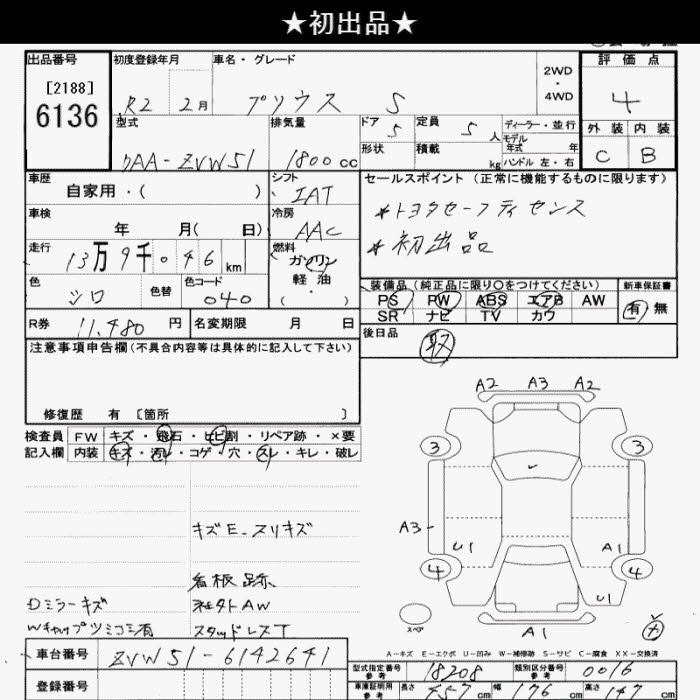 ★初出品★
出品番号 初度登録年月 車名・グレード 2WD ・ 4WD 評価点
[2188]
6136 R2 2月 プリウス S 4
型式 排気量 ドア 5 定員 5人 ディーラー・並行 外装 内装
形状 積載 kg モデル年式 年 ハンドル 左・右 C B
DAA-ZVW51 1800cc
車歴 シフト セールスポイント(正常に機能するものに限ります)
自家用・( ) IAT
車検 冷房 *トヨタセーフティセンス
年 月( 日) AAC *初出品
走行 燃料
13万9千046km ガソリン
軽・油
( ・ )
色 色替 色コード 装備品(純正品に限り○をつけてください) 新車保証書
シロ 040 PS PW ABS エアB AW 有 無
SR ナビ TV カワ
R券 11,480円 名変期限 月 日 後日品
取
注意事項申告欄(不具合内容等は具体的に記入して下さい)
修復歴 有 〔箇所 〕
検査員 FW キズ・飛石・ヒビ割・リペア跡・×要
記入欄 内装 キズ・汚レ・コゲ・穴・スレ・キレ・破レ
A2 A3 A2
3 3
A3
U1 A1
4 4
U1
スペア
A1
キズE-スリキズ
看板跡
Dミラーキズ 社外AW
WキャップツミコミP有 スタッドレスT
A-キズ E-エクボ U-凹み W-補修跡 S-サビ C-腐食 XX-交換済
車台番号 ZVW51-6142641
型式指定番号 参考 18208 類別区分番号 参考 0016
登録番号
車庫証明用 参考 長さ 457cm 幅 176cm 高さ 147cm